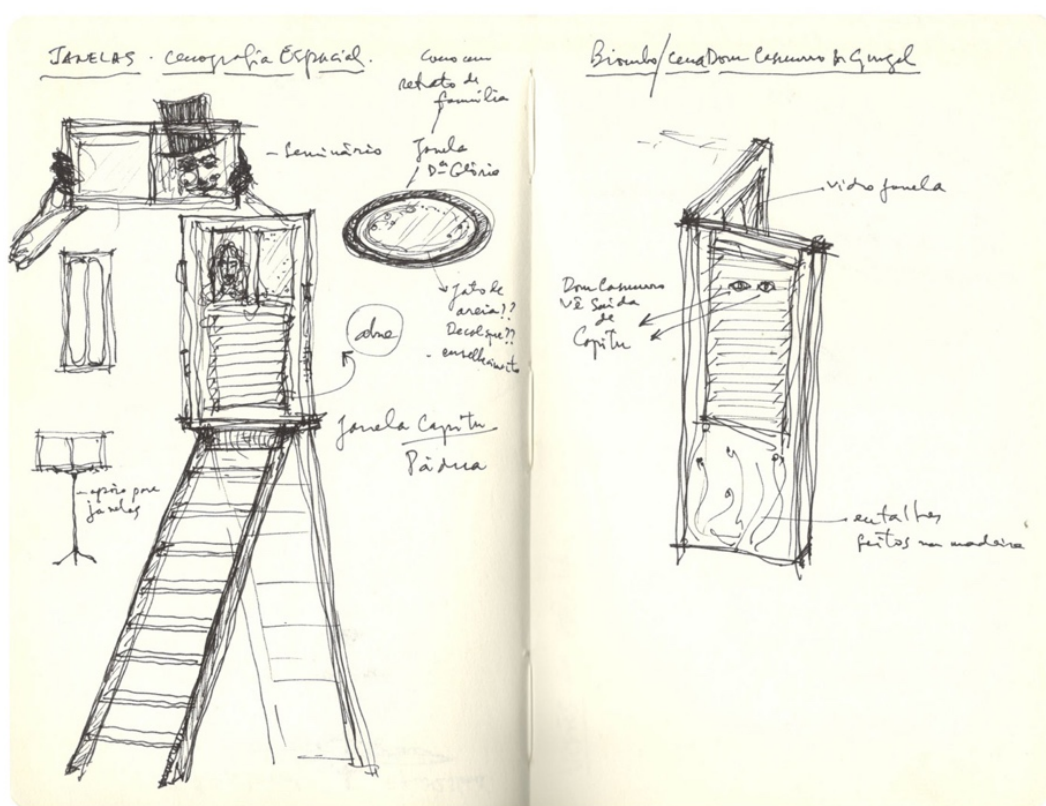 JANELAS - Cenografia Espacial.
como um
retrato de
família
- Seminário
Janela
Dª Glória
Jato de
areia??
Decalque??
- espelhamento
abre
janela Capitu
Pádua
- apoio para
janelas
Biombo/cena Dom Casmurro
vidro janela
Dom Casmurro
vê saída
de
Capitu
entalhes
feitos na madeira